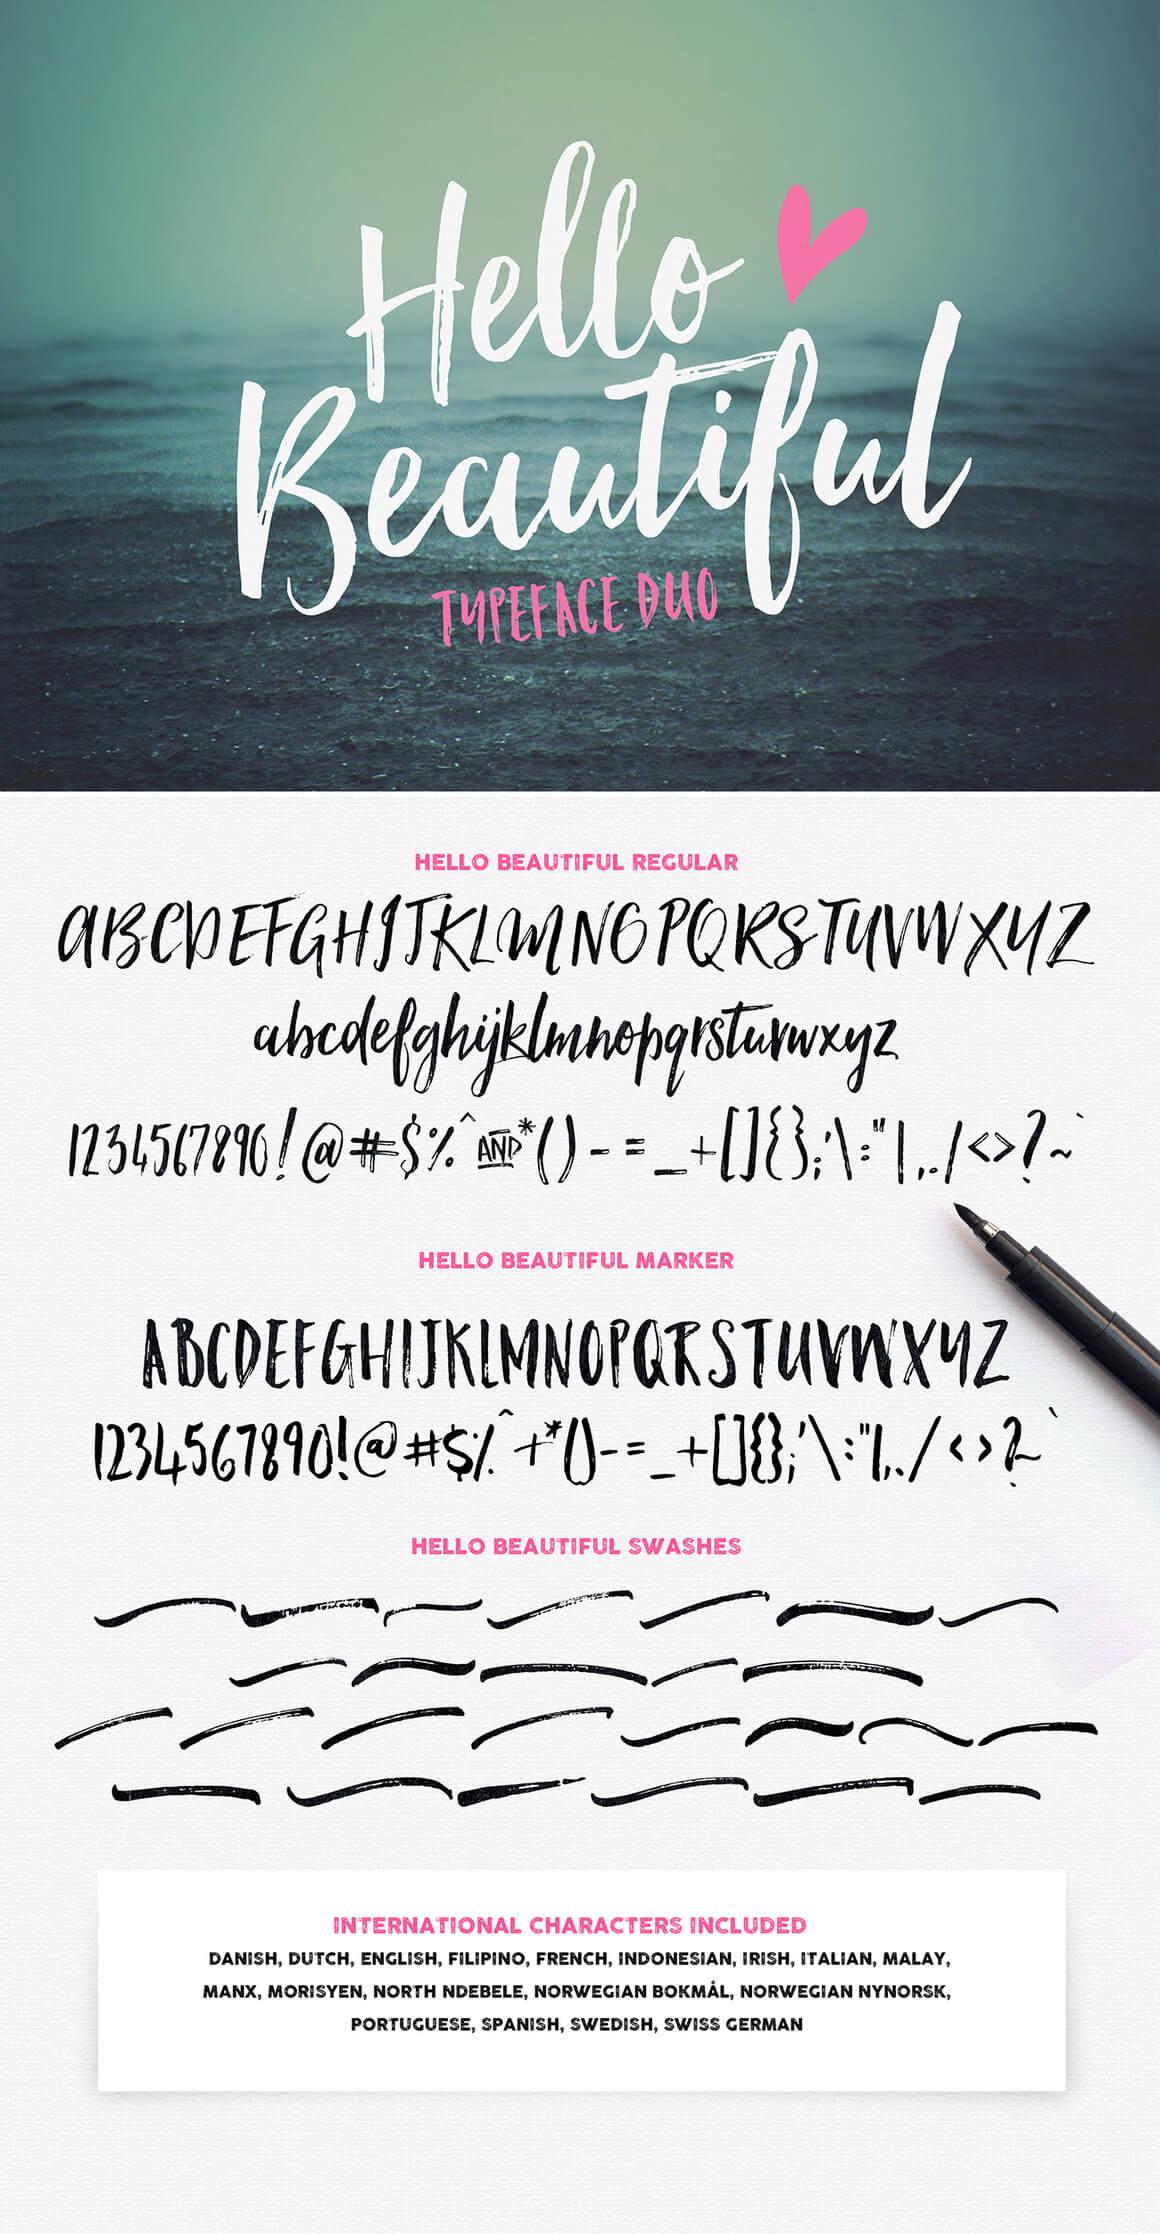 Hello
Beautiful
TYPEFACE DUO
HELLO BEAUTIFUL REGULAR
ABCDEFGHIJKLMNOPQRSTUVWXYZ
abcdefghijklmnopqrstuvwxyz
1234567890!@#$%^AND*()-=_+[]{};'\:"|,./<>?~`
HELLO BEAUTIFUL MARKER
ABCDEFGHIJKLMNOPQRSTUVWXYZ
1234567890!@#$%^+*()-=_+[]{};'\:"|,./<>?~`
HELLO BEAUTIFUL SWASHES
INTERNATIONAL CHARACTERS INCLUDED
DANISH, DUTCH, ENGLISH, FILIPINO, FRENCH, INDONESIAN, IRISH, ITALIAN, MALAY,
MANX, MORISYEN, NORTH NDEBELE, NORWEGIAN BOKMÅL, NORWEGIAN NYNORSK,
PORTUGUESE, SPANISH, SWEDISH, SWISS GERMAN